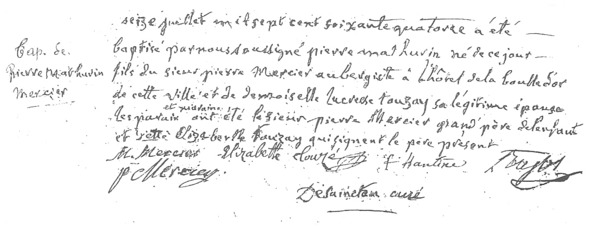 seize juillet mil sept cent soixante quatorze a été
Bap. de
Pierre Mathurin
Mercier
baptisé par nous soussigné pierre mathurin né de ce jour
fils du sieur pierre Mercier aubergiste à L'hôtel de la boulle d'or
de cette ville et de demoiselle Lucresse touzay sa légitime épouse
les parain et maraine ont été le sieur pierre Mercier grand père de lenfant
et Elizabeth touzay qui signent le père présent
M. Mercier Elizabette
p Mercier
Desaincton curé